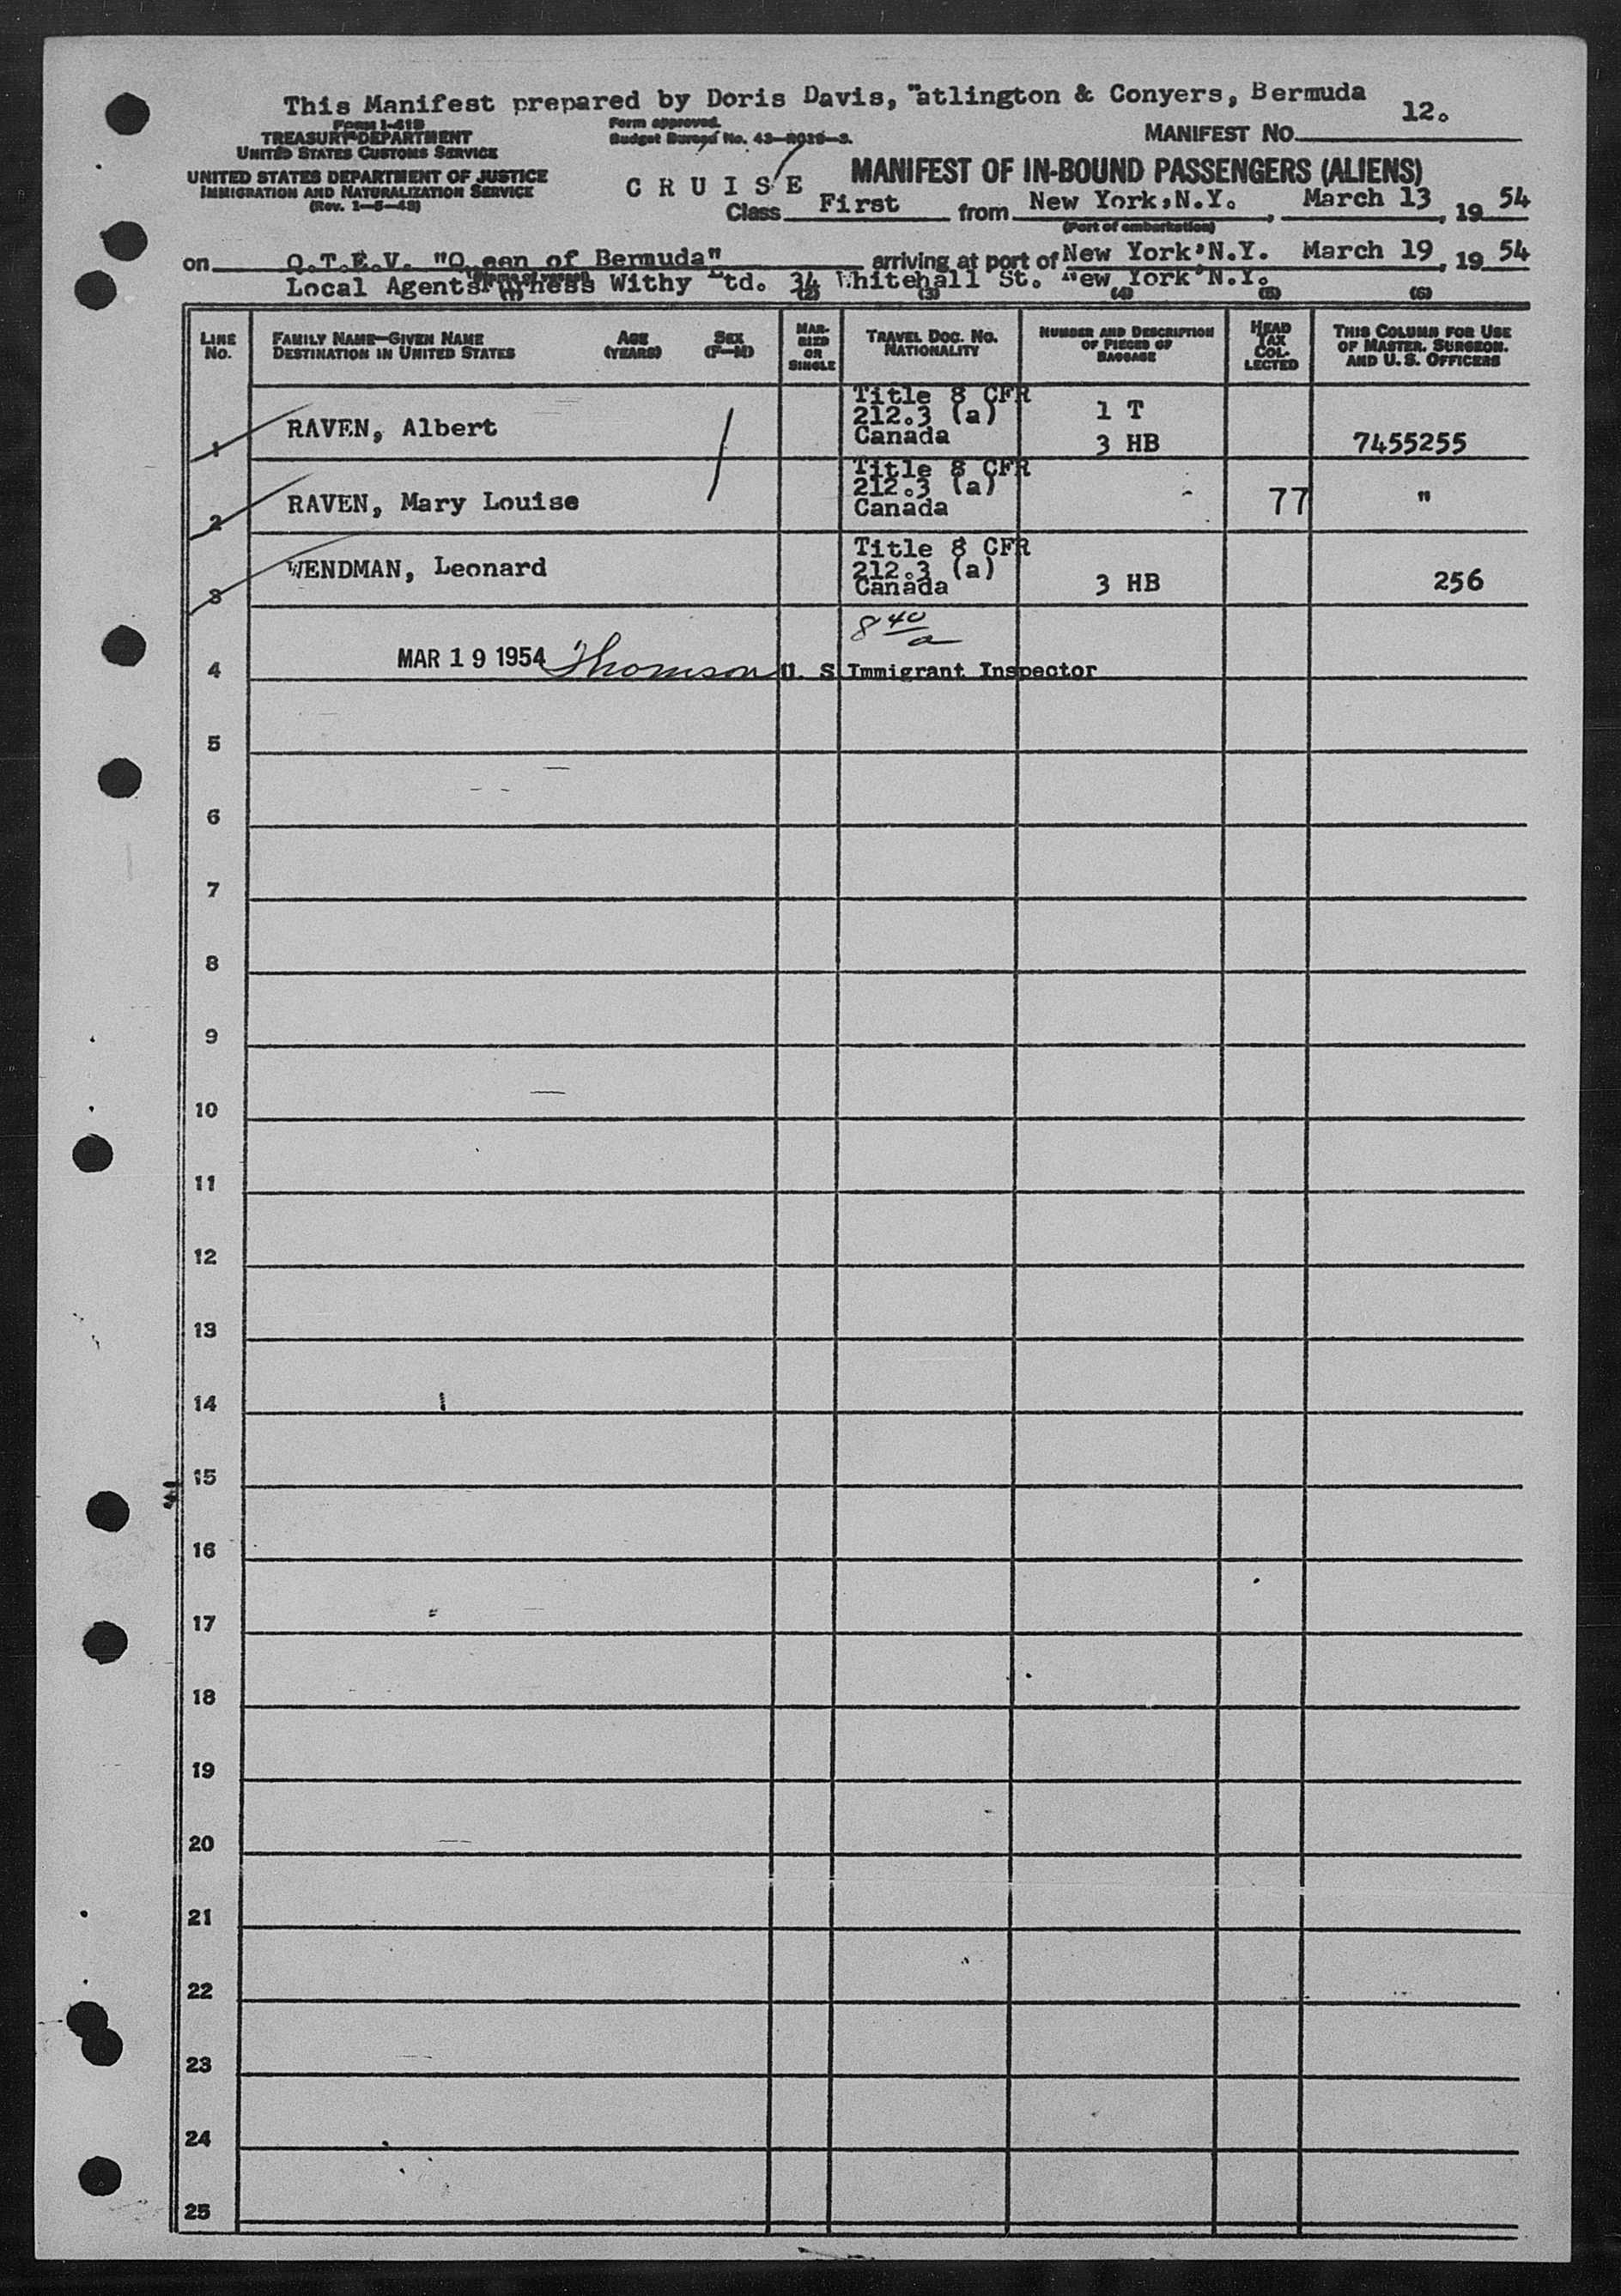 This Manifest prepared by Doris Davis, "atlington & Conyers, Bermuda
12.
Form I-418
TREASURY DEPARTMENT
UNITED STATES CUSTOMS SERVICE
Form approved.
Budget Bureau No. 43-R029-3.
MANIFEST NO.
UNITED STATES DEPARTMENT OF JUSTICE
IMMIGRATION AND NATURALIZATION SERVICE
(Rev. 1-5-48)
CRUISE
MANIFEST OF IN-BOUND PASSENGERS (ALIENS)
Class First from New York, N.Y., March 13, 19 54
(Port of embarkation)
on Q.T.E.V. "Q een of Bermuda" arriving at port of New York, N.Y. March 19, 19 54
(Name of vessel)
Local Agents Furness Withy Ltd. 34 Whitehall St. New York N.Y.
(1) (2) (3) (4) (5) (6)
LINE No.
FAMILY NAME—GIVEN NAME
DESTINATION IN UNITED STATES
AGE (YEARS)
SEX (F—M)
MARRIED OR SINGLE
TRAVEL DOC. NO.
NATIONALITY
NUMBER AND DESCRIPTION OF PIECES OF BAGGAGE
HEAD TAX COLLECTED
THIS COLUMN FOR USE OF MASTER, SURGEON, AND U. S. OFFICERS
1 RAVEN, Albert
Title 8 CFR
212.3 (a)
Canada
1 T
3 HB
7455255
2 RAVEN, Mary Louise
Title 8 CFR
212.3 (a)
Canada
-
77
"
3 WENDMAN, Leonard
Title 8 CFR
212.3 (a)
Canada
3 HB
256
8 40/a
4 MAR 19 1954 Thomson U. S Immigrant Inspector
5
6
7
8
9
10
11
12
13
14
15
16
17
18
19
20
21
22
23
24
25